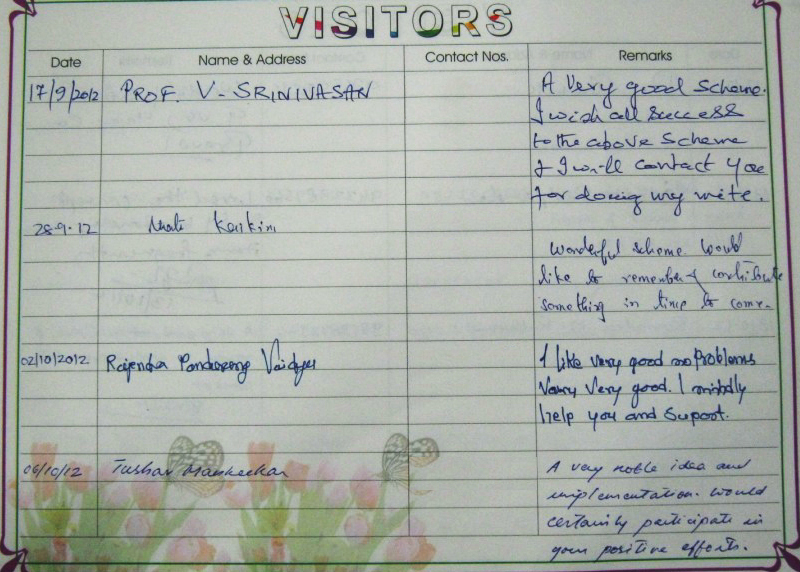 VISITORS
Date Name & Address Contact Nos. Remarks
17/9/2012 PROF. V - SRINIVASAN A very good scheme.
I wish all success
to the above scheme
& I will contact you
for doing my mite.
28.9.12 Kaikini
Wonderful scheme. Would
like to remember & contribute
something in time to come.
02/10/2012 Rajendra Pandurang Vaidya I like very good no Problems
Vary Very good. I
help you and Suport.
06/10/12 Tushar Mankeekar A very noble idea and
implementation. Would
certainly participate in
your positive efforts.